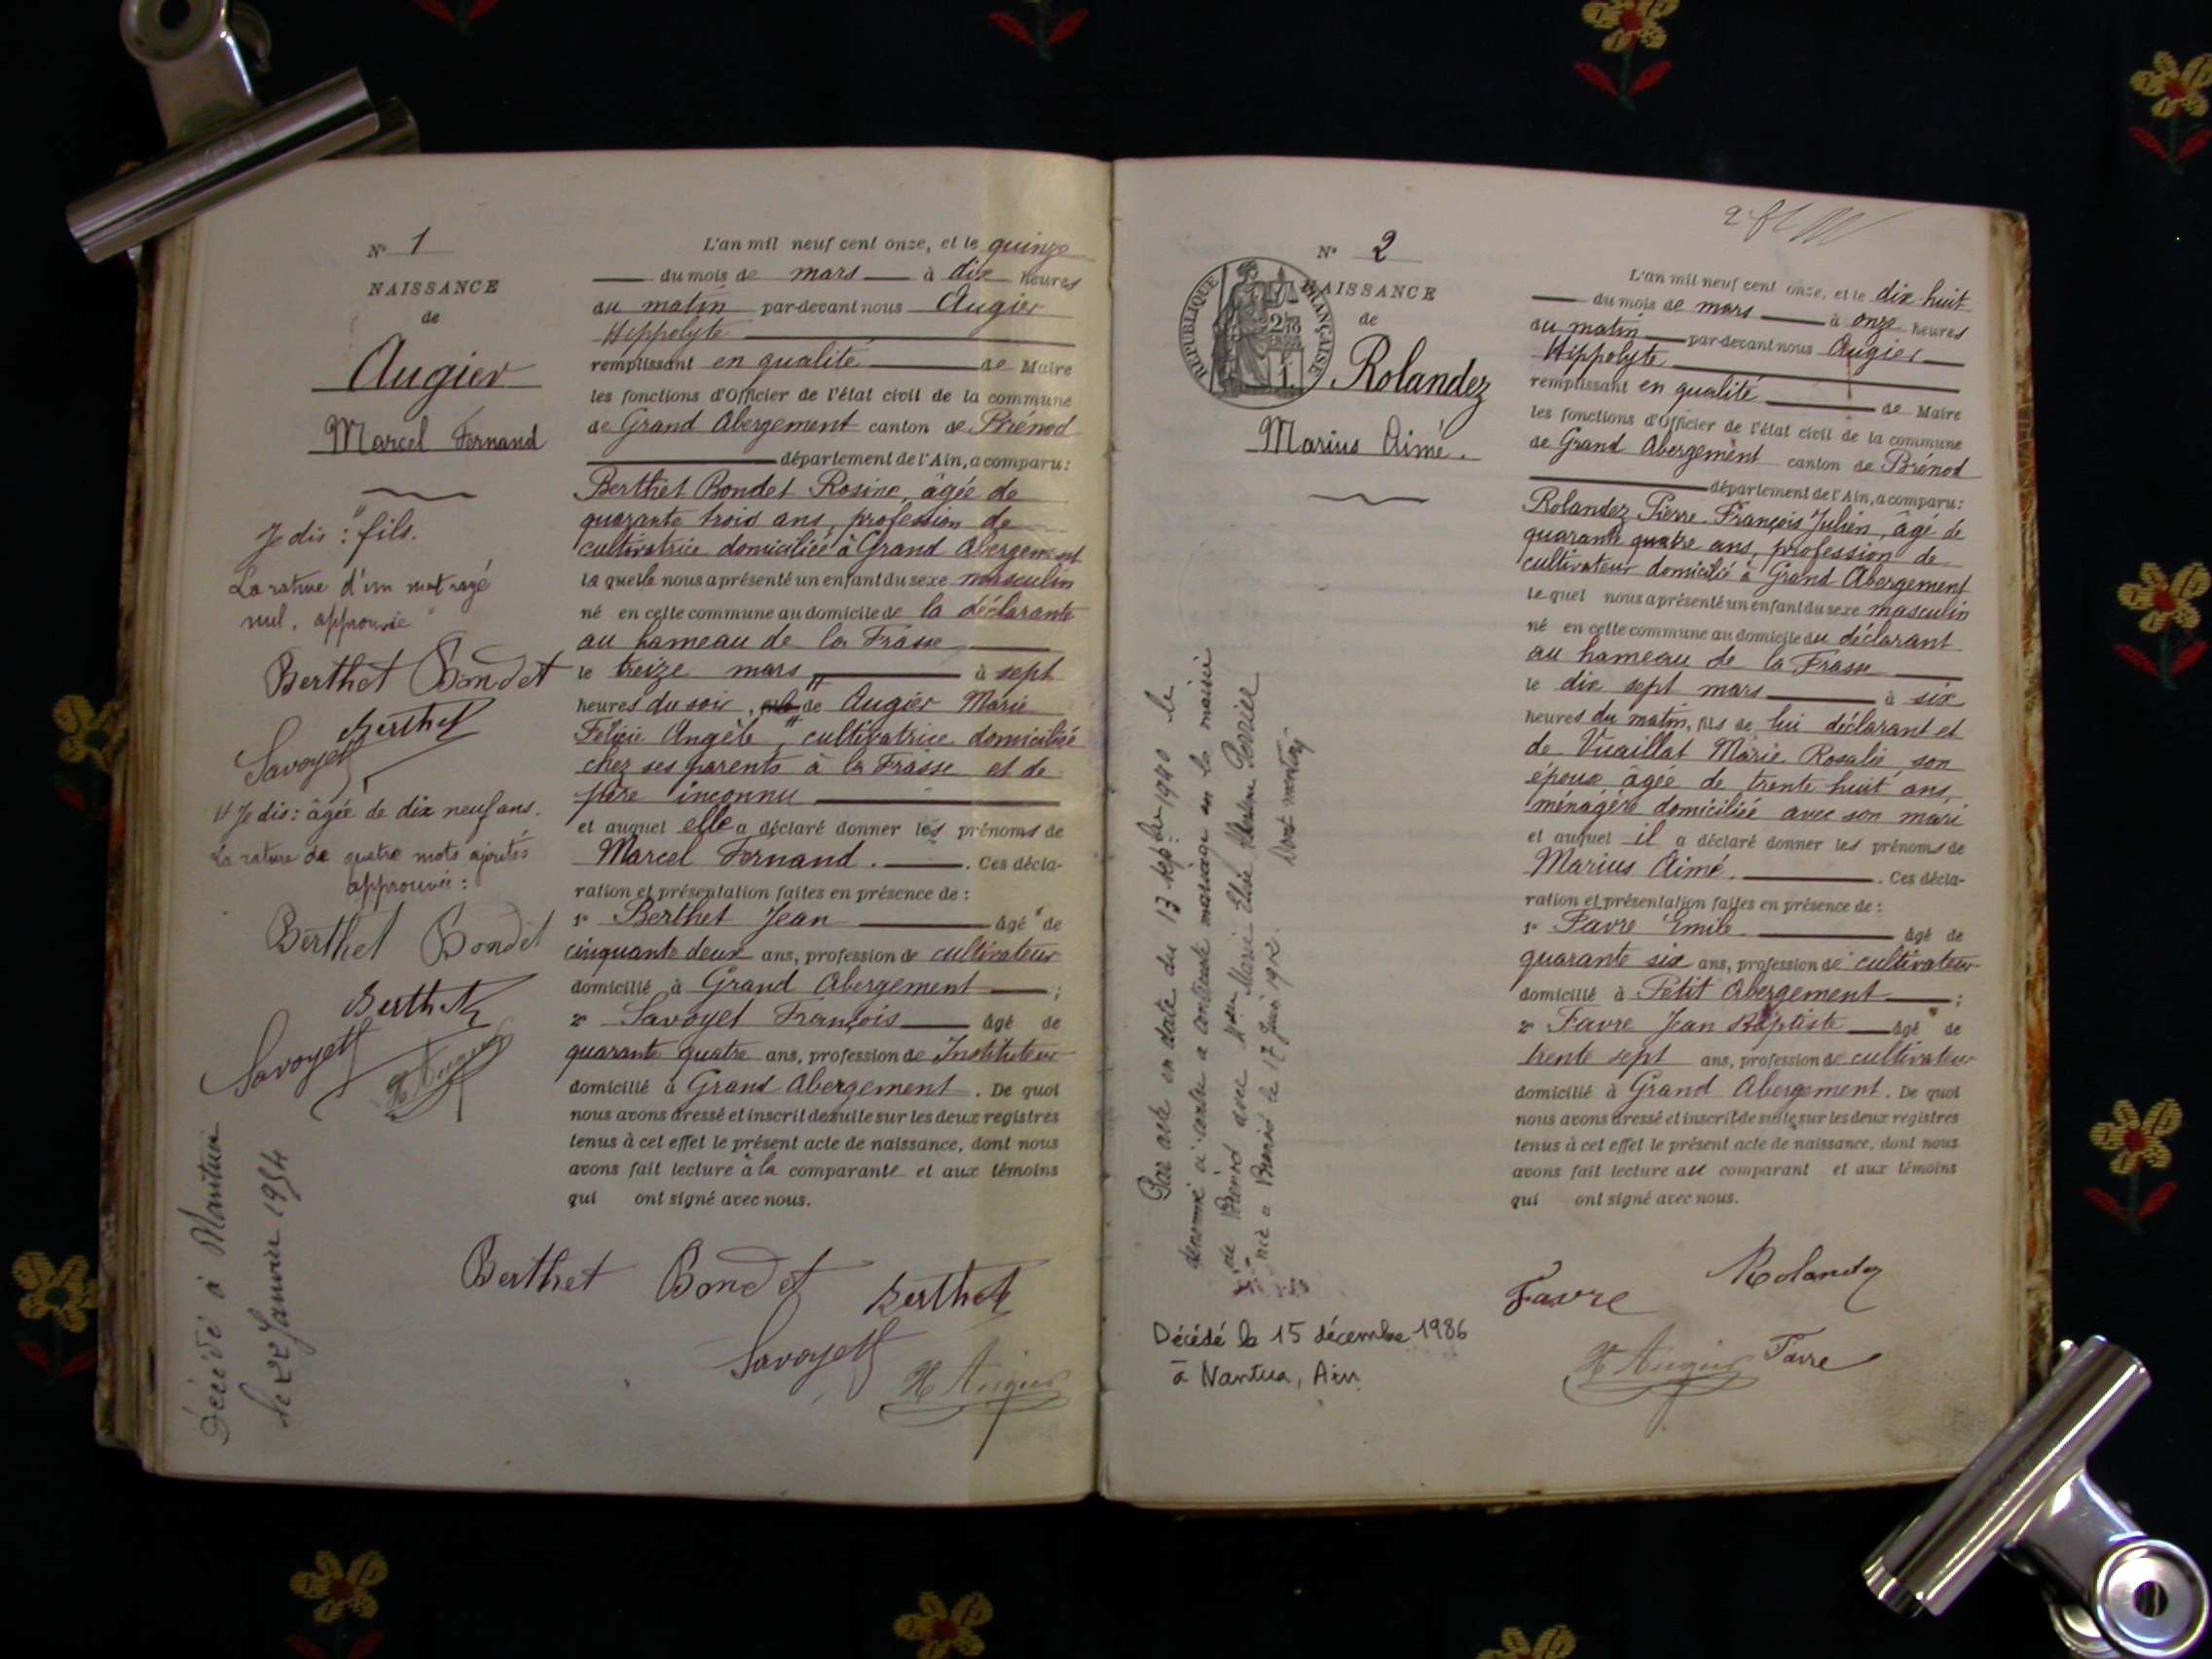 N° 1
NAISSANCE
de
Augier
Marcel Fernand
Je dis : "fils.
La rature d'un mot rayé
nul, approuvée
Berthet Bondet
Berthet
Savoyet
# Je dis : âgée de dix neuf ans.
La rature de quatre mots ajoutés
approuvée :
Berthet Bondet
Berthet
Savoyet
H Augier
Décédé à Nantua
le 22 Janvier 1954
L'an mil neuf cent onze, et le quinze
du mois de mars à dix heures
du matin par-devant nous Augier
Hippolyte
remplissant en qualité de Maire
les fonctions d'Officier de l'état civil de la commune
de Grand Abergement canton de Brénod
département de l'Ain, a comparu :
Berthet Bondet Rosine, âgée de
quarante trois ans, profession de
cultivatrice domiciliée à Grand Abergement
la quelle nous a présenté un enfant du sexe masculin
né en cette commune au domicile de la déclarante
au hameau de la Frasse
le treize mars à sept
heures du soir, " de Augier Marie
Félicie Angèle #, cultivatrice domiciliée
chez ses parents à la Frasse et de
père inconnu
et auquel elle a déclaré donner les prénoms de
Marcel Fernand. . Ces décla-
ration et présentation faites en présence de :
1° Berthet Jean âgé de
cinquante deux ans, profession de cultivateur
domicilié à Grand Abergement ;
2° Savoyet François âgé de
quarante quatre ans, profession de Instituteur
domicilié à Grand Abergement . De quoi
nous avons dressé et inscrit de suite sur les deux registres
tenus à cet effet le présent acte de naissance, dont nous
avons fait lecture à la comparante et aux témoins
qui ont signé avec nous.
Berthet Bondet Berthet
Savoyet
H Augier
N° 2
NAISSANCE
de
RÉPUBLIQUE FRANÇAISE
Rolandez
Marius Aimé.
Par acte en date du 13 septbre 1940 le
dénommé ci-contre a contracté mariage en la mairie
de Brénod avec Marie Elise Perrier
née à Brénod le 17 juin 1912.
Dont mention
Décédé le 15 décembre 1986
à Nantua, Ain.
L'an mil neuf cent onze, et le dix huit
du mois de mars à onze heures
du matin par-devant nous Augier
Hippolyte
remplissant en qualité de Maire
les fonctions d'Officier de l'état civil de la commune
de Grand Abergement canton de Brénod
département de l'Ain, a comparu :
Rolandez Pierre François Julien, âgé de
quarante quatre ans, profession de
cultivateur domicilié à Grand Abergement
le quel nous a présenté un enfant du sexe masculin
né en cette commune au domicile du déclarant
au hameau de la Frasse
le dix sept mars à six
heures du matin, fils de lui déclarant et
de Vuaillat Marie Rosalie son
épouse âgée de trente huit ans,
ménagère domiciliée avec son mari
et auquel il a déclaré donner les prénoms de
Marius Aimé. . Ces décla-
ration et présentation faites en présence de :
1° Favre Emile âgé de
quarante six ans, profession de cultivateur
domicilié à Petit Abergement ;
2° Favre Jean Baptiste âgé de
trente sept ans, profession de cultivateur
domicilié à Grand Abergement. De quoi
nous avons dressé et inscrit de suite sur les deux registres
tenus à cet effet le présent acte de naissance, dont nous
avons fait lecture au comparant et aux témoins
qui ont signé avec nous.
Rolandez
Favre
H Augier Favre